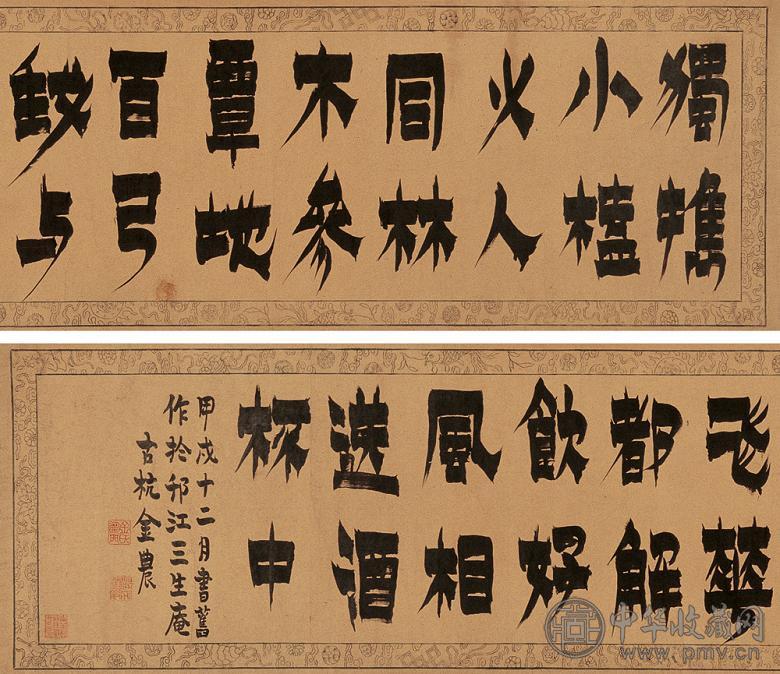 獨携
小榼
人
同林
木參
覃地
百弓
与
飛華
都解
飲好
風相
送酒
杯中
甲戌十二月書舊
作於邗江三生庵
古杭金農
中华收藏网
www.pmv.cn